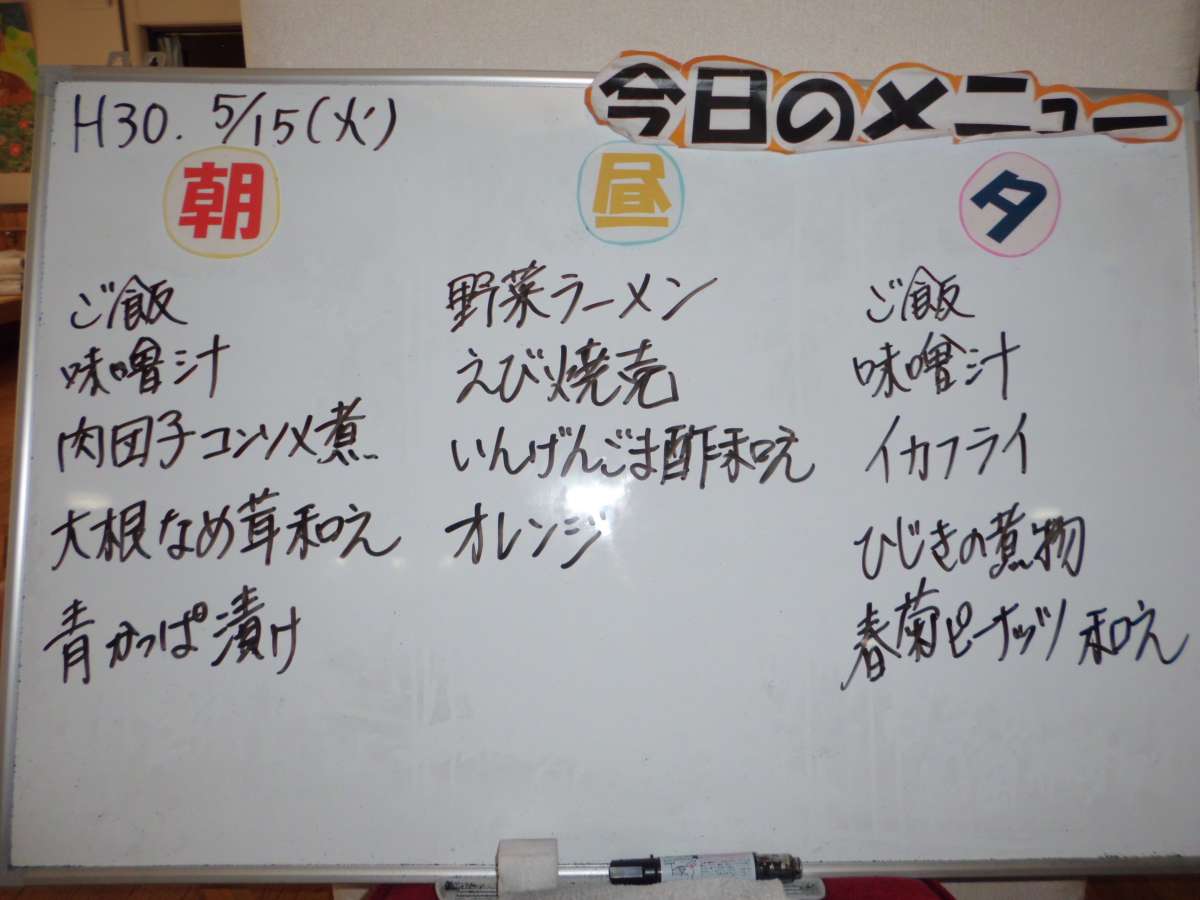 今日のメニュー
H30. 5/15(火)
朝
ご飯
味噌汁
肉団子コンソメ煮
大根なめ茸和え
青かっぱ漬け
昼
野菜ラーメン
えび焼売
いんげんごま酢和え
オレンジ
夕
ご飯
味噌汁
イカフライ
ひじきの煮物
春菊ピーナッツ和え